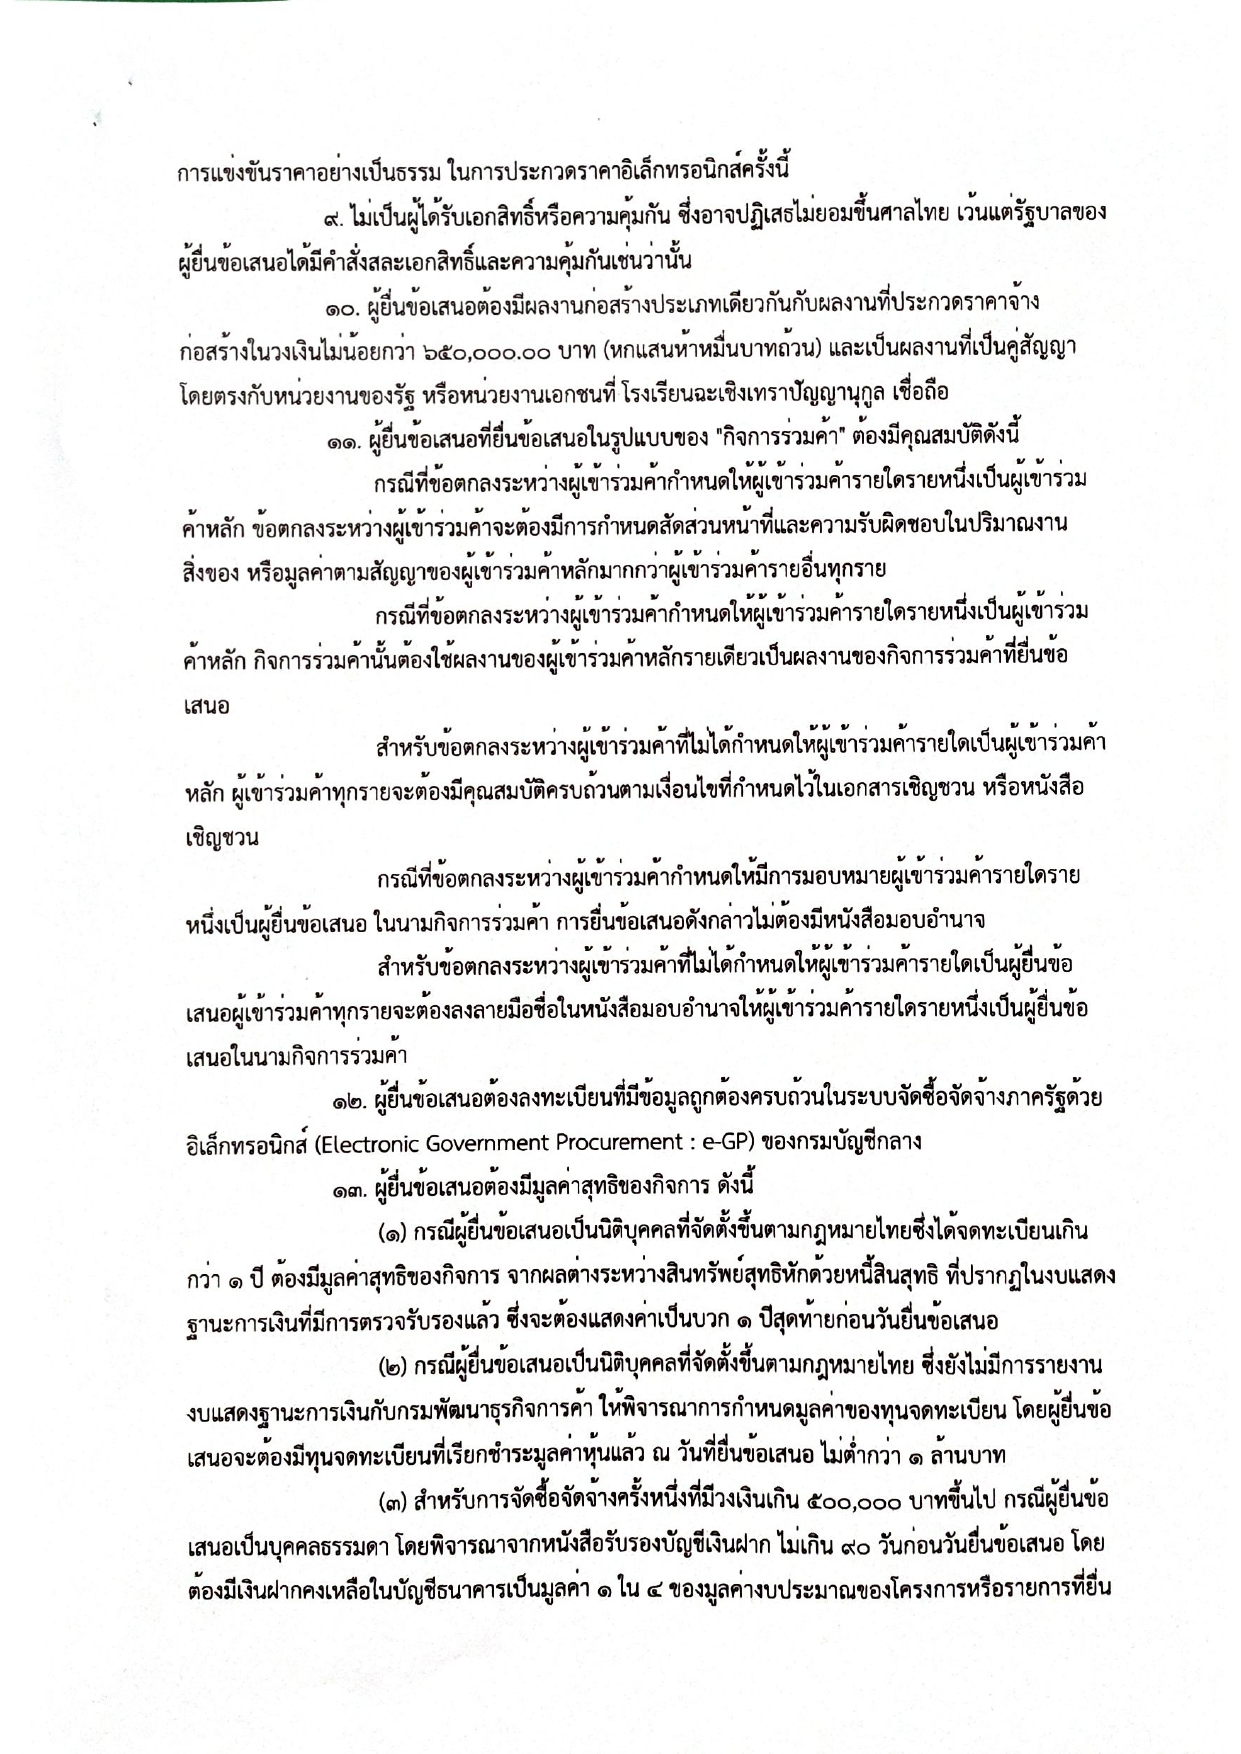 การแข่งขันราคาอย่างเป็นธรรม ในการประกวดราคาอิเล็กทรอนิกส์ครั้งนี้
๙. ไม่เป็นผู้ได้รับเอกสิทธิ์หรือความคุ้มกัน ซึ่งอาจปฏิเสธไม่ยอมขึ้นศาลไทย เว้นแต่รัฐบาลของ
ผู้ยื่นข้อเสนอได้มีคำสั่งสละเอกสิทธิ์และความคุ้มกันเช่นว่านั้น
๑๐. ผู้ยื่นข้อเสนอต้องมีผลงานก่อสร้างประเภทเดียวกันกับผลงานที่ประกวดราคาจ้าง
ก่อสร้างในวงเงินไม่น้อยกว่า ๖๕๐,๐๐๐.๐๐ บาท (หกแสนห้าหมื่นบาทถ้วน) และเป็นผลงานที่เป็นคู่สัญญา
โดยตรงกับหน่วยงานของรัฐ หรือหน่วยงานเอกชนที่ โรงเรียนฉะเชิงเทราปัญญานุกูล เชื่อถือ
๑๑. ผู้ยื่นข้อเสนอที่ยื่นข้อเสนอในรูปแบบของ "กิจการร่วมค้า" ต้องมีคุณสมบัติดังนี้
กรณีที่ข้อตกลงระหว่างผู้เข้าร่วมค้ากำหนดให้ผู้เข้าร่วมค้ารายใดรายหนึ่งเป็นผู้เข้าร่วม
ค้าหลัก ข้อตกลงระหว่างผู้เข้าร่วมค้าจะต้องมีการกำหนดสัดส่วนหน้าที่และความรับผิดชอบในปริมาณงาน
สิ่งของ หรือมูลค่าตามสัญญาของผู้เข้าร่วมค้าหลักมากกว่าผู้เข้าร่วมค้ารายอื่นทุกราย
กรณีที่ข้อตกลงระหว่างผู้เข้าร่วมค้ากำหนดให้ผู้เข้าร่วมค้ารายใดรายหนึ่งเป็นผู้เข้าร่วม
ค้าหลัก กิจการร่วมค้านั้นต้องใช้ผลงานของผู้เข้าร่วมค้าหลักรายเดียวเป็นผลงานของกิจการร่วมค้าที่ยื่นข้อ
เสนอ
สำหรับข้อตกลงระหว่างผู้เข้าร่วมค้าที่ไม่ได้กำหนดให้ผู้เข้าร่วมค้ารายใดเป็นผู้เข้าร่วมค้า
หลัก ผู้เข้าร่วมค้าทุกรายจะต้องมีคุณสมบัติครบถ้วนตามเงื่อนไขที่กำหนดไว้ในเอกสารเชิญชวน หรือหนังสือ
เชิญชวน
กรณีที่ข้อตกลงระหว่างผู้เข้าร่วมค้ากำหนดให้มีการมอบหมายผู้เข้าร่วมค้ารายใดราย
หนึ่งเป็นผู้ยื่นข้อเสนอ ในนามกิจการร่วมค้า การยื่นข้อเสนอดังกล่าวไม่ต้องมีหนังสือมอบอำนาจ
สำหรับข้อตกลงระหว่างผู้เข้าร่วมค้าที่ไม่ได้กำหนดให้ผู้เข้าร่วมค้ารายใดเป็นผู้ยื่นข้อ
เสนอผู้เข้าร่วมค้าทุกรายจะต้องลงลายมือชื่อในหนังสือมอบอำนาจให้ผู้เข้าร่วมค้ารายใดรายหนึ่งเป็นผู้ยื่นข้อ
เสนอในนามกิจการร่วมค้า
๑๒. ผู้ยื่นข้อเสนอต้องลงทะเบียนที่มีข้อมูลถูกต้องครบถ้วนในระบบจัดซื้อจัดจ้างภาครัฐด้วย
อิเล็กทรอนิกส์ (Electronic Government Procurement : e-GP) ของกรมบัญชีกลาง
๑๓. ผู้ยื่นข้อเสนอต้องมีมูลค่าสุทธิของกิจการ ดังนี้
(๑) กรณีผู้ยื่นข้อเสนอเป็นนิติบุคคลที่จัดตั้งขึ้นตามกฎหมายไทยซึ่งได้จดทะเบียนเกิน
กว่า ๑ ปี ต้องมีมูลค่าสุทธิของกิจการ จากผลต่างระหว่างสินทรัพย์สุทธิหักด้วยหนี้สินสุทธิ ที่ปรากฏในงบแสดง
ฐานะการเงินที่มีการตรวจรับรองแล้ว ซึ่งจะต้องแสดงค่าเป็นบวก ๑ ปีสุดท้ายก่อนวันยื่นข้อเสนอ
(๒) กรณีผู้ยื่นข้อเสนอเป็นนิติบุคคลที่จัดตั้งขึ้นตามกฎหมายไทย ซึ่งยังไม่มีการรายงาน
งบแสดงฐานะการเงินกับกรมพัฒนาธุรกิจการค้า ให้พิจารณาการกำหนดมูลค่าของทุนจดทะเบียน โดยผู้ยื่นข้อ
เสนอจะต้องมีทุนจดทะเบียนที่เรียกชำระมูลค่าหุ้นแล้ว ณ วันที่ยื่นข้อเสนอ ไม่ต่ำกว่า ๑ ล้านบาท
(๓) สำหรับการจัดซื้อจัดจ้างครั้งหนึ่งที่มีวงเงินเกิน ๕๐๐,๐๐๐ บาทขึ้นไป กรณีผู้ยื่นข้อ
เสนอเป็นบุคคลธรรมดา โดยพิจารณาจากหนังสือรับรองบัญชีเงินฝาก ไม่เกิน ๙๐ วันก่อนวันยื่นข้อเสนอ โดย
ต้องมีเงินฝากคงเหลือในบัญชีธนาคารเป็นมูลค่า ๑ ใน ๔ ของมูลค่างบประมาณของโครงการหรือรายการที่ยื่น